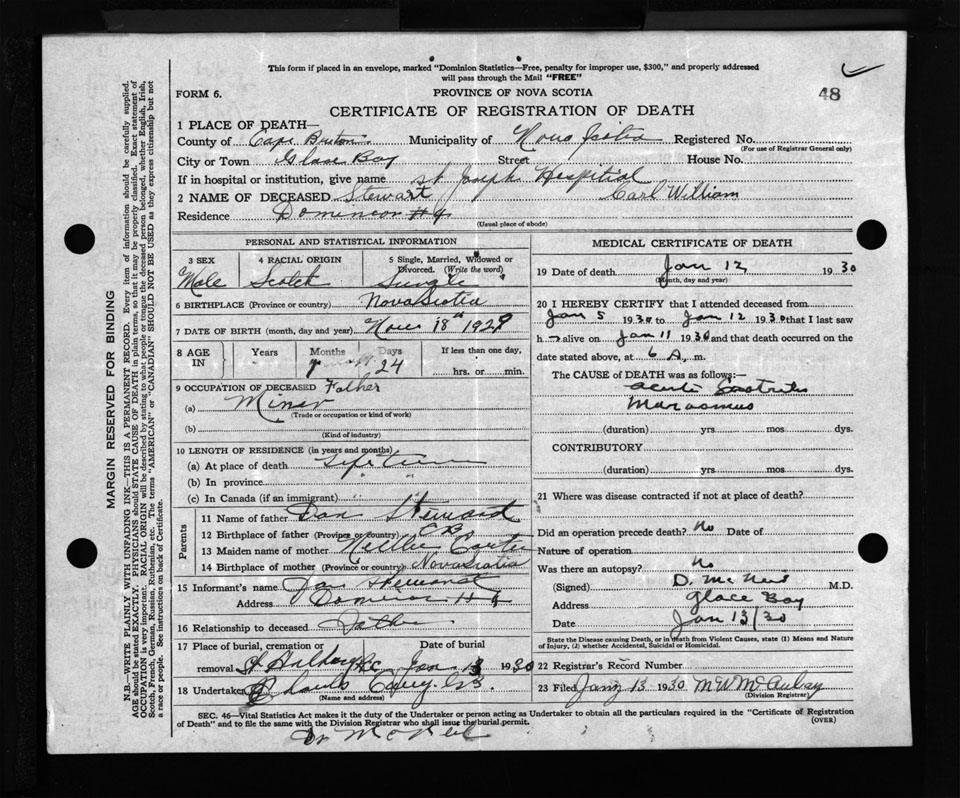 This form if placed in an envelope, marked "Dominion Statistics—Free, penalty for improper use, $300," and properly addressed
will pass through the Mail "FREE"
FORM 6.
PROVINCE OF NOVA SCOTIA
48
CERTIFICATE OF REGISTRATION OF DEATH
1 PLACE OF DEATH—
County of Cape Breton Municipality of Nova Scotia Registered No.
(For use of Registrar General only)
City or Town Glace Bay Street House No.
If in hospital or institution, give name St Joseph Hospitial
2 NAME OF DECEASED Stewart Carl William
Residence Dominion #4
(Usual place of abode)
PERSONAL AND STATISTICAL INFORMATION
3 SEX 4 RACIAL ORIGIN 5 Single, Married, Widowed or Divorced. (Write the word)
Male Scotch Single
6 BIRTHPLACE (Province or country) Nova Scotia
7 DATE OF BIRTH (month, day and year) Nov 18th 1929
8 AGE IN Years Months Days If less than one day,
24 hrs. or min.
9 OCCUPATION OF DECEASED Father
(a) Miner
(Trade or occupation or kind of work)
(b)
(Kind of industry)
10 LENGTH OF RESIDENCE (in years and months)
(a) At place of death Life time
(b) In province " "
(c) In Canada (if an immigrant) " "
Parents
11 Name of father Dan Steward
12 Birthplace of father (Province or country) C B
13 Maiden name of mother Nellie
14 Birthplace of mother (Province or country) Nova Scotia
15 Informant's name Dan Steward
Address Dominion #4
16 Relationship to deceased Father
17 Place of burial, cremation or Date of burial
removal Jan 13 1930
18 Undertaker
(Name and address)
MEDICAL CERTIFICATE OF DEATH
19 Date of death Jan 12 1930
(Month, day and year)
20 I HEREBY CERTIFY that I attended deceased from
Jan 5 1930 to Jan 12 1930 that I last saw
h alive on Jan 11 1930 and that death occurred on the
date stated above, at 6 A. m.
The CAUSE of DEATH was as follows:—
Acute Gastritis
Marasmus
(duration) yrs mos dys.
CONTRIBUTORY
(duration) yrs mos dys.
21 Where was disease contracted if not at place of death?
Did an operation precede death? No Date of
Nature of operation
Was there an autopsy? No
(Signed) D. McNeil M.D.
Address Glace Bay
Date Jan 13/30
State the Disease causing Death, or in Death from Violent Causes, state (1) Means and Nature
of Injury, (2) whether Accidental, Suicidal or Homicidal.
22 Registrar's Record Number
23 Filed Jany 13 1930 M W McAulay
(Division Registrar)
SEC. 46—Vital Statistics Act makes it the duty of the Undertaker or person acting as Undertaker to obtain all the particulars required in the "Certificate of Registration
of Death" and to file the same with the Division Registrar who shall issue the burial permit.
(OVER)
Dr McNeil
MARGIN RESERVED FOR BINDING
N.B.—WRITE PLAINLY WITH UNFADING INK—THIS IS A PERMANENT RECORD. Every item of information should be carefully supplied.
AGE should be stated EXACTLY. PHYSICIANS should STATE CAUSE OF DEATH in plain terms, so that it may be properly classified. Exact statement of
OCCUPATION is very important. RACIAL ORIGIN will be described by stating to what people or tongue the deceased person belonged, whether English, Irish,
Scotch, French, German, Russian, Ruthenian, etc. The terms "AMERICAN" or "CANADIAN" SHOULD NOT BE USED as they express citizenship but not
a race or people. See instructions on back of Certificate.